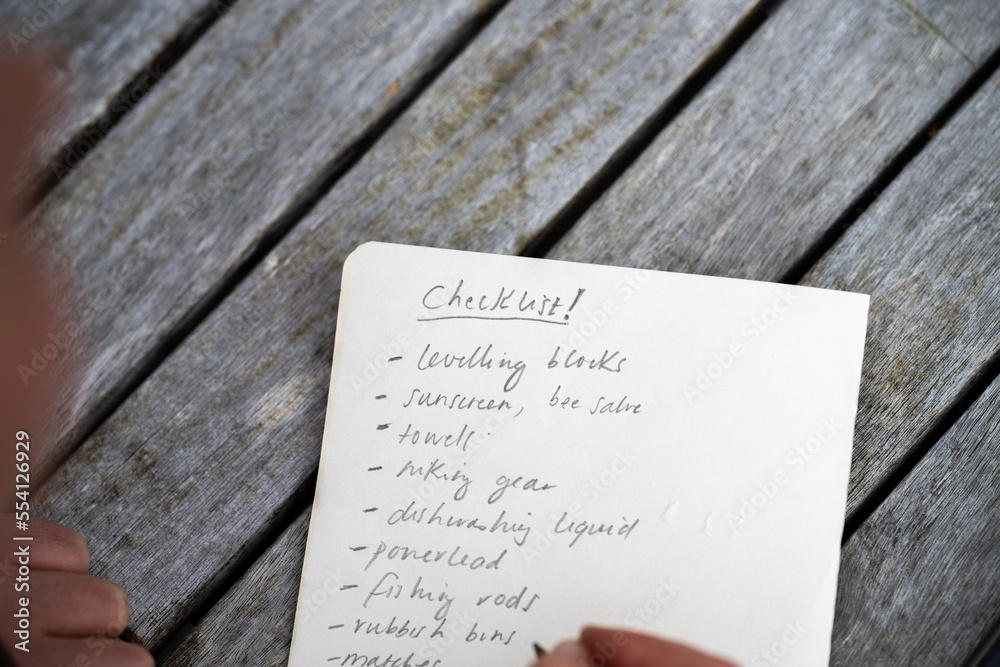 Checklist!
- levelling blocks
- sunscreen, bee salve
- towels
- hiking gear
- dishwashing liquid
- powerlead
- fishing rods
- rubbish bins
- matches
Adobe Stock | 554126929